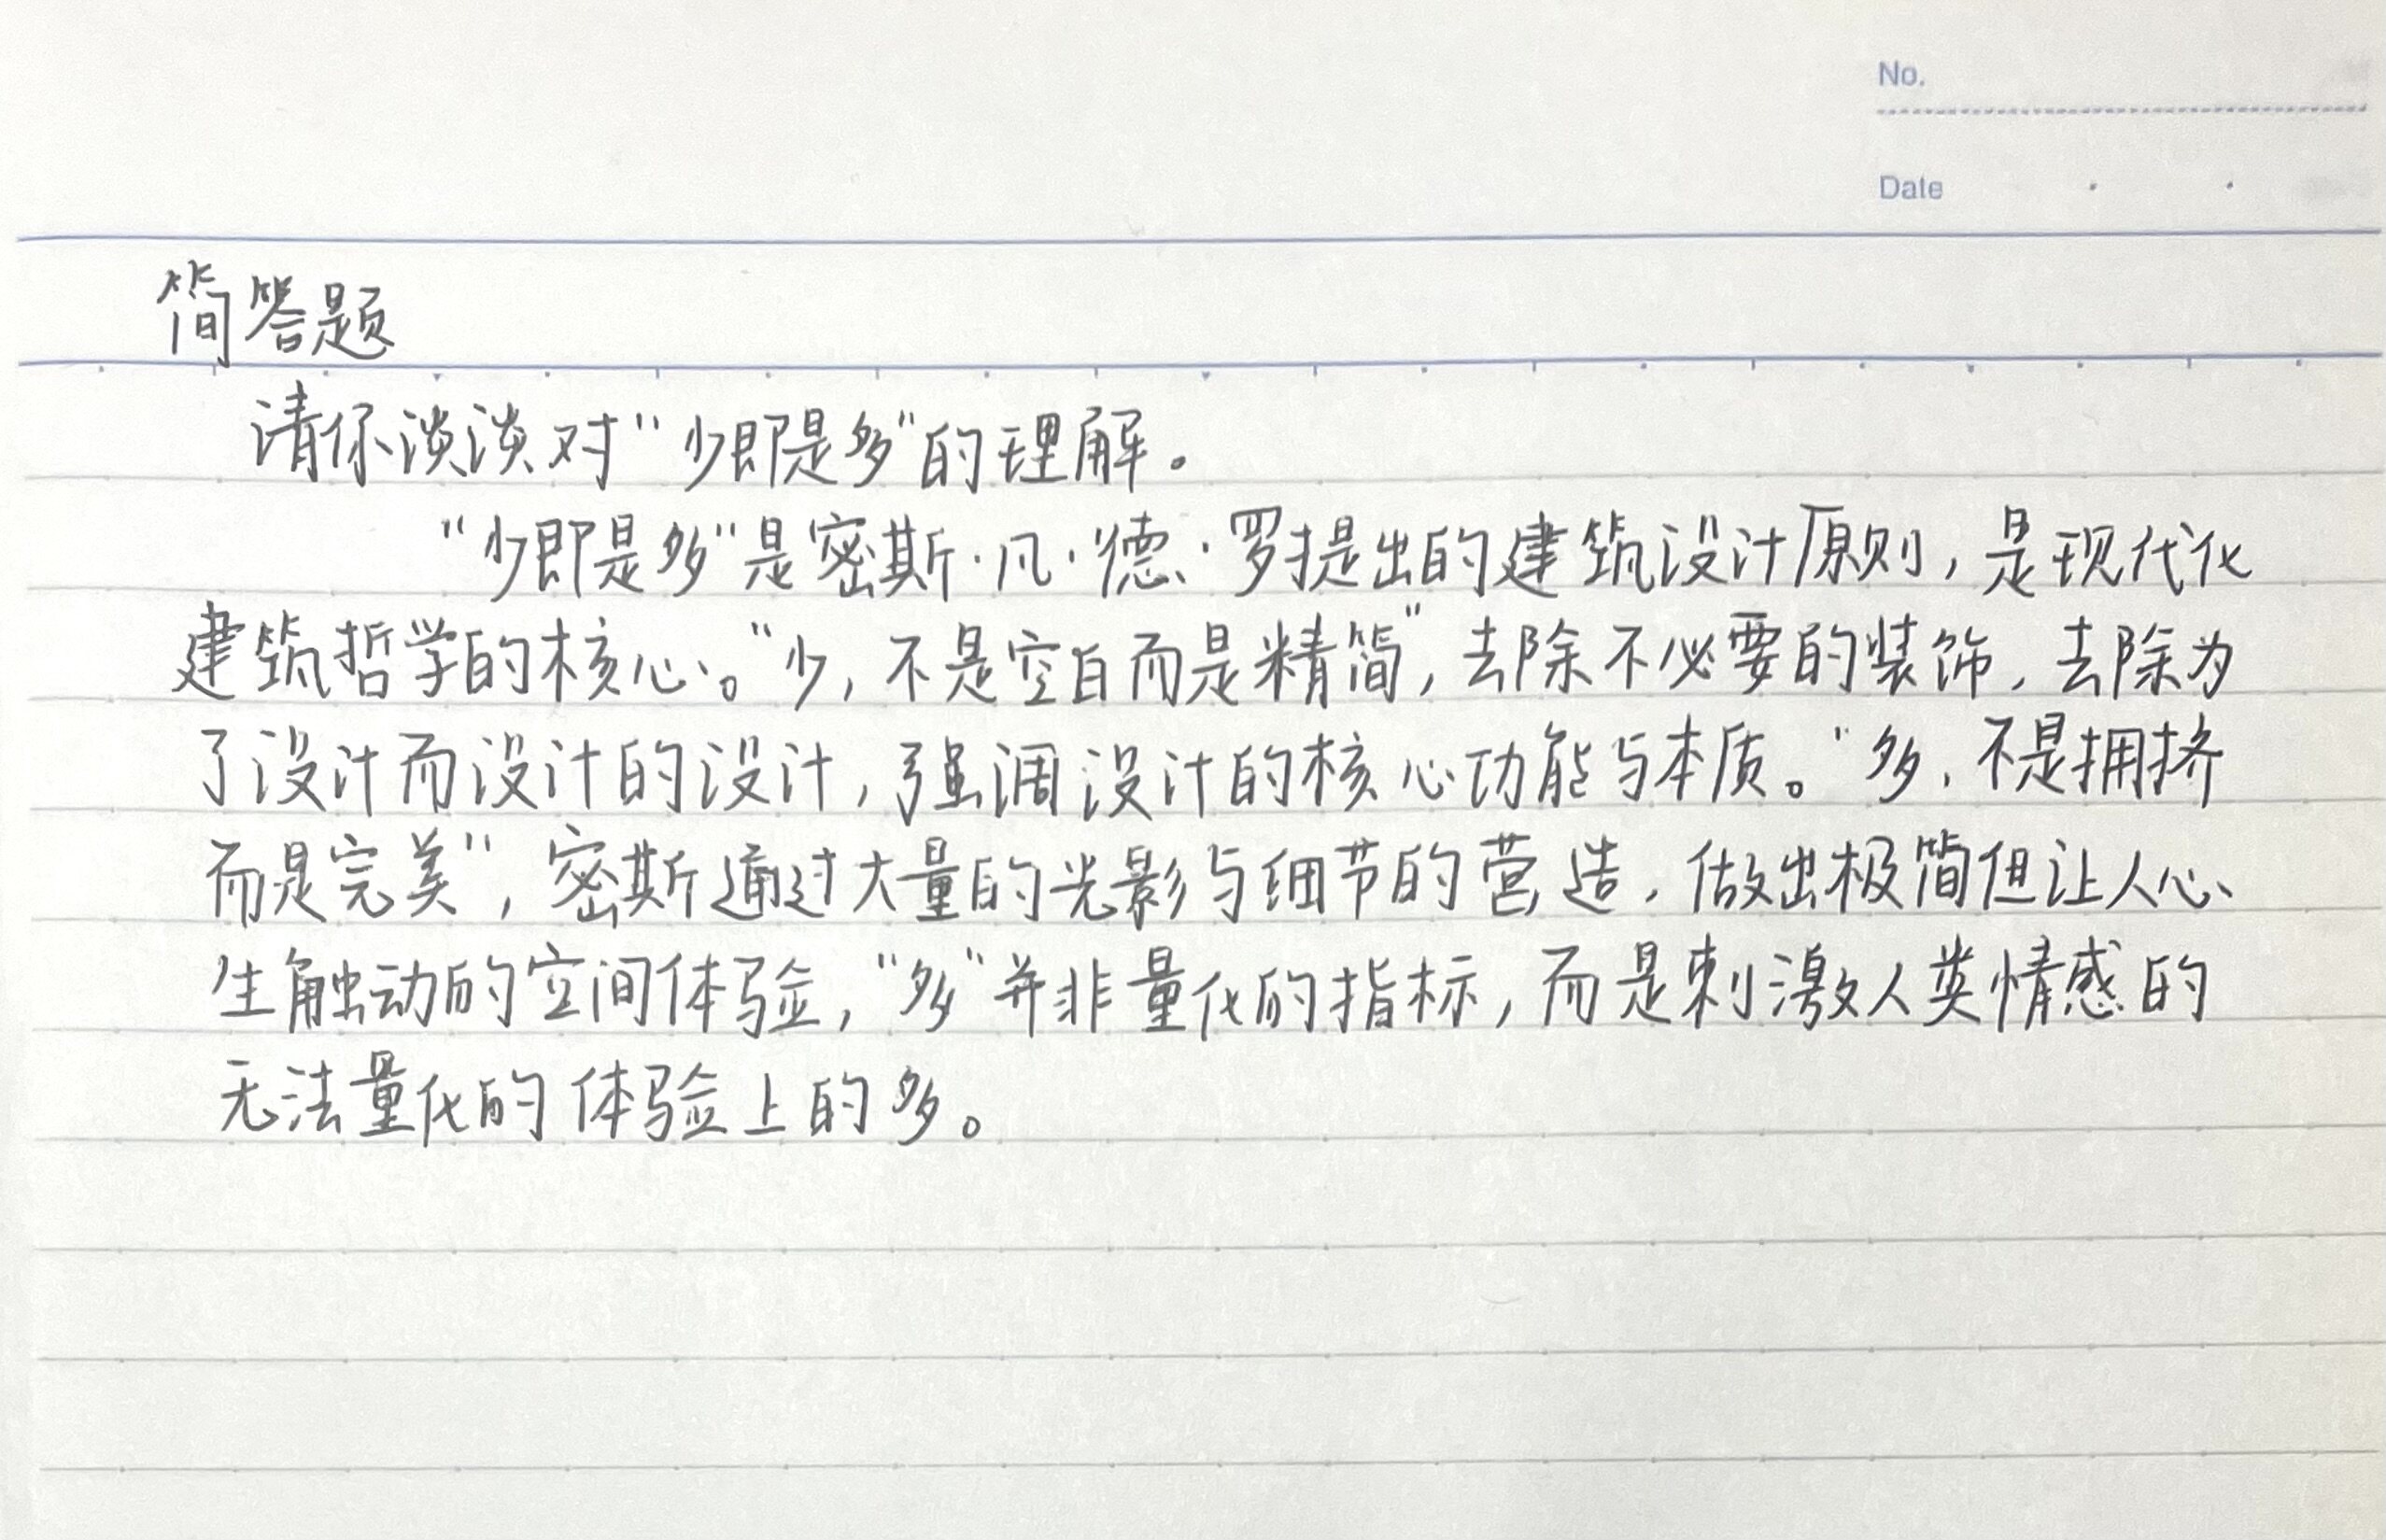 No.
Date
简答题
请你谈谈对"少即是多"的理解。
"少即是多"是密斯·凡·德·罗提出的建筑设计原则，是现代化
建筑哲学的核心。"少，不是空白而是精简"，去除不必要的装饰，去除为
了设计而设计的设计，强调设计的核心功能与本质。"多，不是拥挤
而是完美"，密斯通过大量的光影与细节的营造，做出极简但让人心
生触动的空间体验，"多"并非量化的指标，而是刺激人类情感的
无法量化的体验上的多。